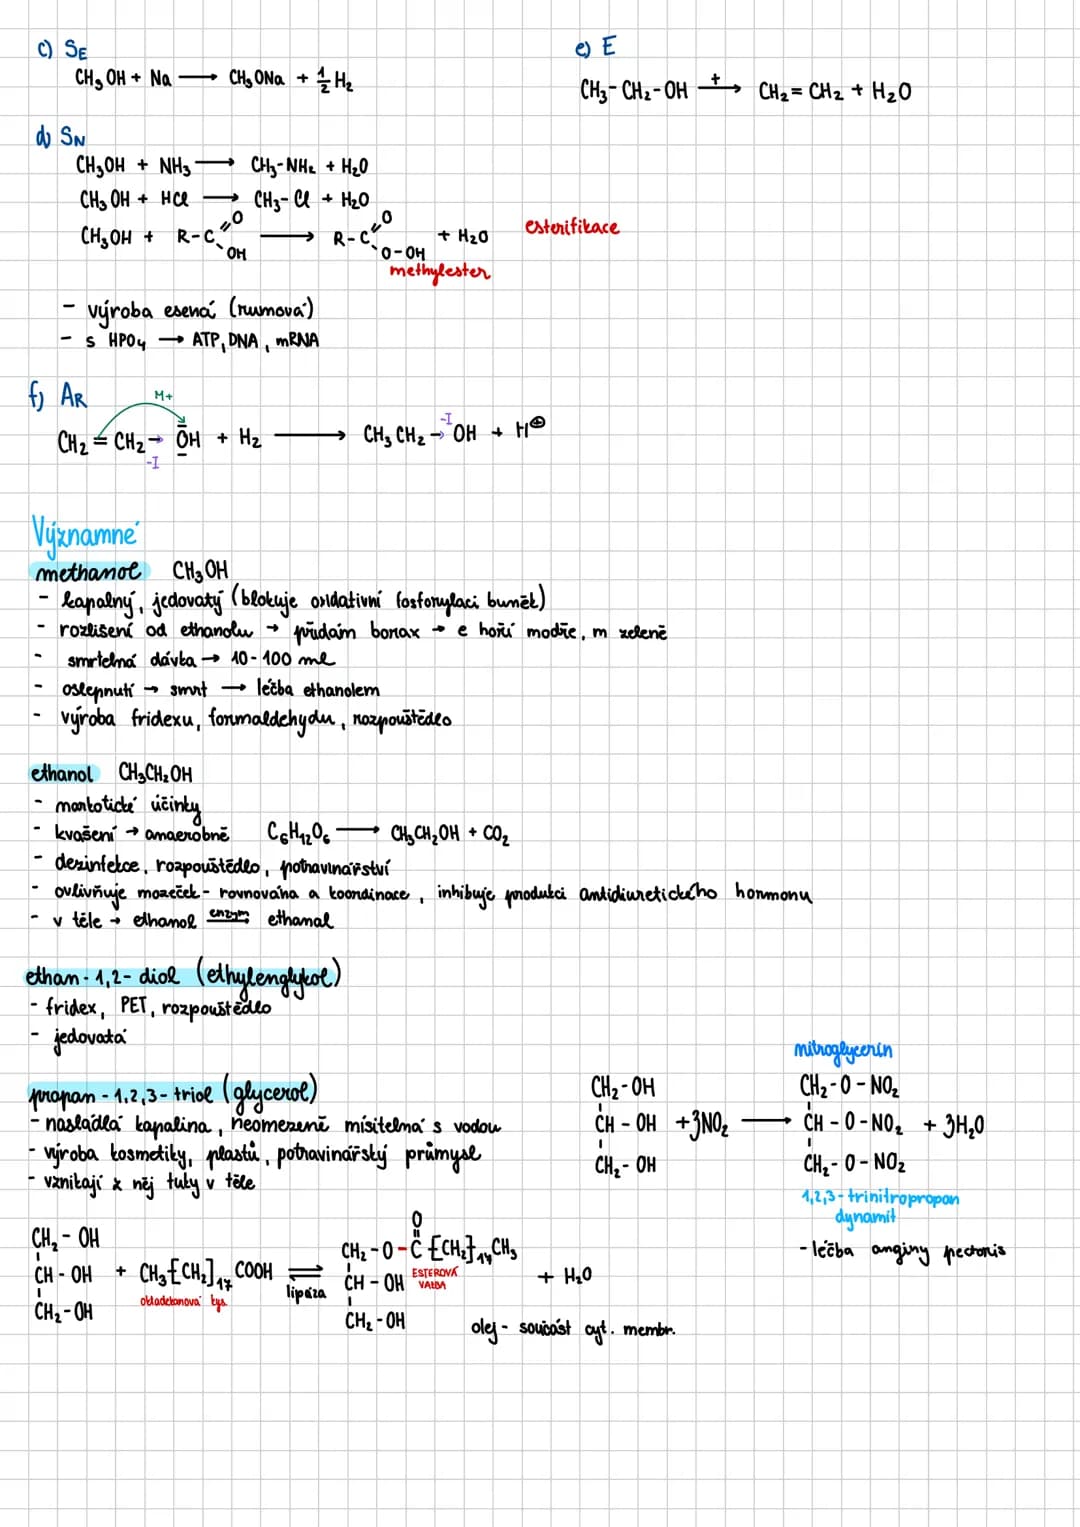 c) SE
CH3OH + Na → CH3ONa + 1/2 H2
e) E
CH3-CH2-OH +→ CH2=CH2 + H2O
d) SN
CH3OH + NH3 → CH3-NH2 + H2O
CH3OH + HCl → CH3-Cl + H2O
CH3OH + R-C=O OH → R-C=O O-OH + H2O esterifikace
methylester
- výroba esencí (rumová)
- s HPO4 → ATP, DNA, mRNA
f) AR
M+
CH2=CH2→OH + H2 → CH3CH2→OH + H⊕
-I
-I
Významné
methanol CH3OH
- kapalný, jedovatý (blokuje oxidativní fosforylaci buněk)
- rozlišení od ethanolu → přidám borax → e hoří modře, m zeleně
- smrtelná dávka → 10-100 ml
- oslepnutí → smrt → léčba ethanolem
- výroba fridexu, formaldehydu, rozpouštědlo
ethanol CH3CH2OH
- narkotické účinky
- kvašení → anaerobně C6H12O6 → CH3CH2OH + CO2
- dezinfekce, rozpouštědlo, potravinářství
- ovlivňuje mozeček - rovnováha a koordinace, inhibuje produkci antidiuretického hormonu
- v těle → ethanol enzym→ ethanal
ethan-1,2-diol (ethylenglykol)
- fridex, PET, rozpouštědlo
- jedovatá
propan-1,2,3-triol (glycerol)
- nasládlá kapalina, neomezeně mísitelná s vodou
- výroba kosmetiky, plastů, potravinářský průmysl
- vznikají z něj tuky v těle
nitroglycerin
CH2-OH CH2-O-NO2
CH-OH +3NO2 → CH-O-NO2 + 3H2O
CH2-OH CH2-O-NO2
1,2,3-trinitropropan
dynamit
- léčba anginy pectoris
O
CH2-OH CH2-O-C[CH2]14CH3
CH-OH + CH3[CH2]17COOH ⇌ CH-OH ESTEROVÁ VAZBA + H2O
oktadekanová kys. lipáza
CH2-OH CH2-OH
olej - součást cyt. membr.